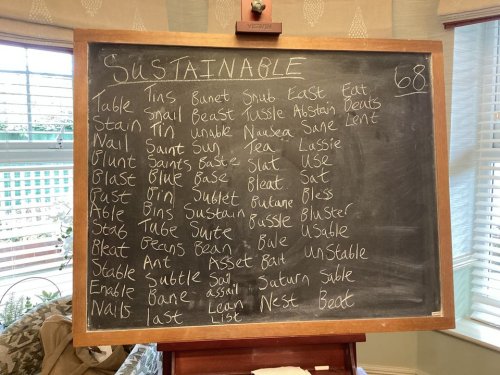 SUSTAINABLE
68
Table Tins Bunet Snub East Eat
Stain Snail Beast Tussle Abstain Beats
Nail Tin unable Nausea Sane Lent
Blunt Saint Sun Tea Lassie
Blast Saints Baste Slat Use
Bust Blue Base Bleat Sat
Able Bin Sublet Butane Bless
Stab Bins Sustain Bussle Bluster
Bleat Tube Suite Bale Usable
Stable Beans Bean Bait unstable
Enable Ant Asset Saturn Sable
Nails Subtle Sail Nest Beat
Bane assail
last Lean
List